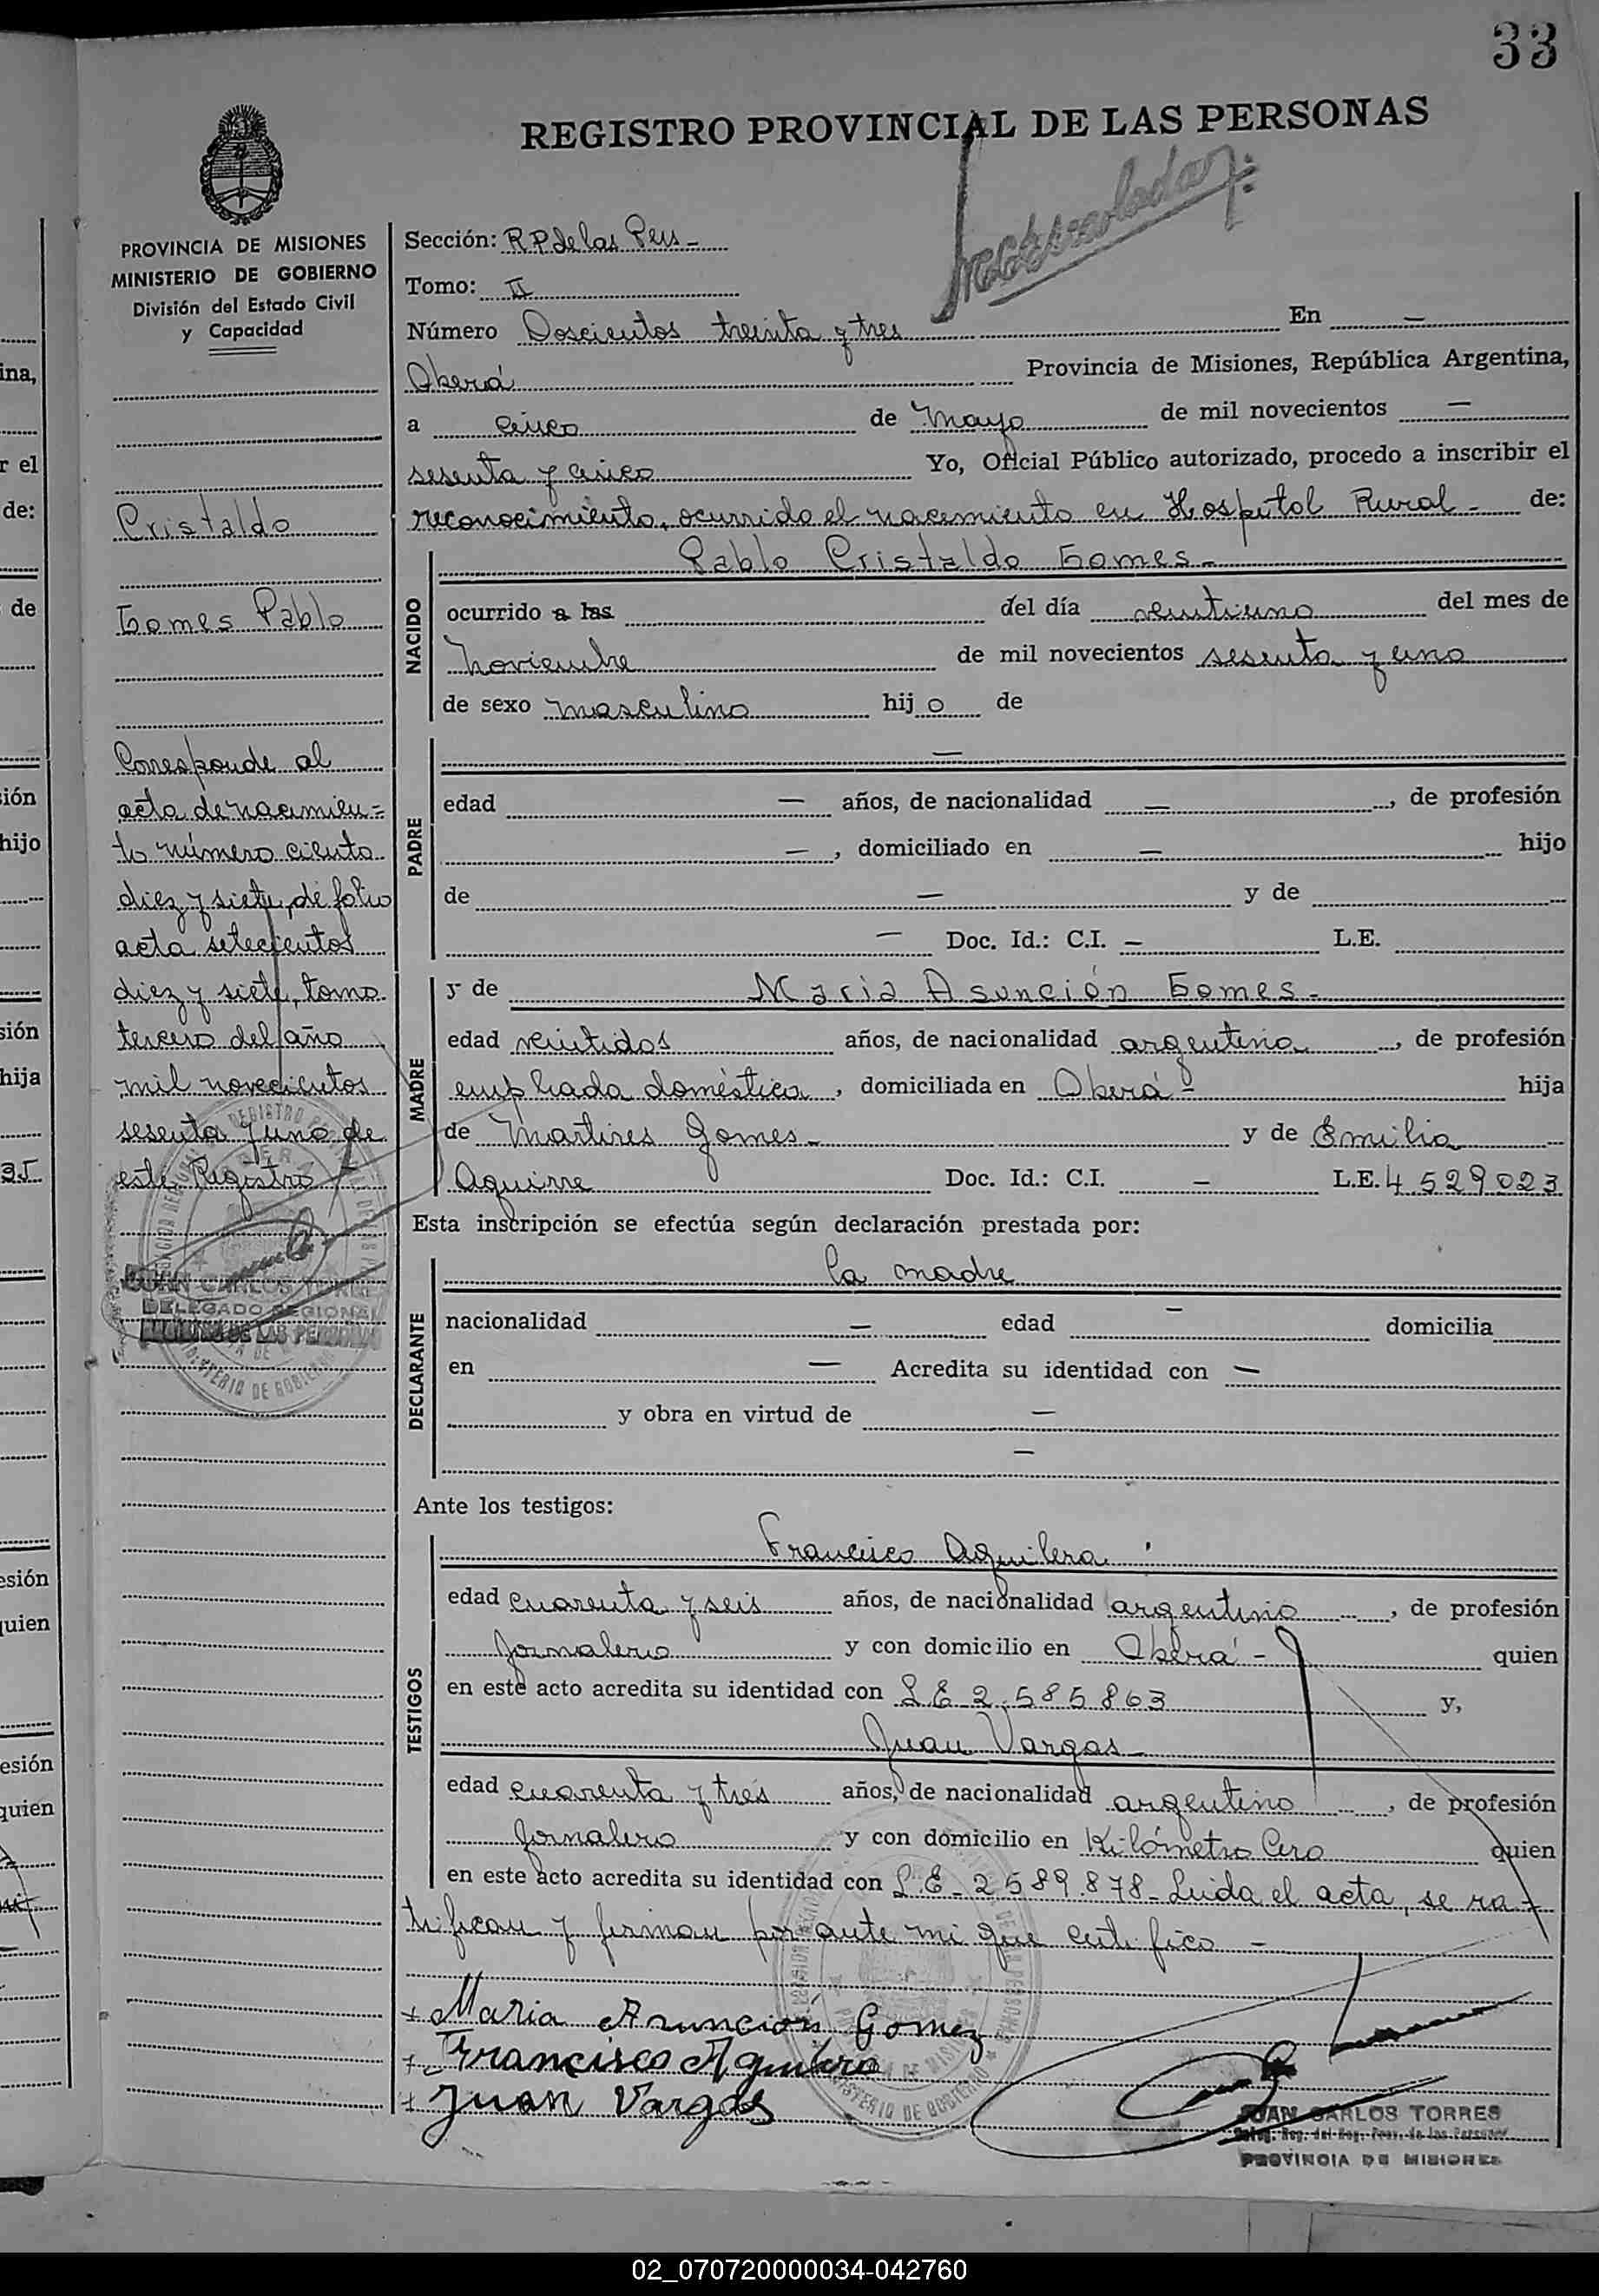 33
REGISTRO PROVINCIAL DE LAS PERSONAS
PROVINCIA DE MISIONES
MINISTERIO DE GOBIERNO
División del Estado Civil
y Capacidad
Cristaldo
Gomes Pablo
Corresponde al
acta de nacimien=
to número ciento
diez y siete, de folio
acta setecientos
diez y siete, tomo
tercero del año
mil novecientos
sesenta y uno de
este Registro
JUAN CARLOS TORRES
DELEGADO REGIONAL
REGISTRO DE LAS PERSONAS
Sección: R.P. de las Pers -
Tomo: II
Número Doscientos treinta y tres En —
Oberá Provincia de Misiones, República Argentina,
a cinco de Mayo de mil novecientos —
sesenta y cinco Yo, Oficial Público autorizado, procedo a inscribir el
reconocimiento, ocurrido el nacimiento en Hospital Rural - de:
NACIDO
Pablo Cristaldo Gomes -
ocurrido a las del día veintiuno del mes de
Noviembre de mil novecientos sesenta y uno
de sexo masculino hijo de
PADRE
—
edad — años, de nacionalidad —, de profesión
— , domiciliado en — hijo
de — y de
— Doc. Id.: C.I. — L.E.
MADRE
y de Maria Asunción Gomes -
edad veintidos años, de nacionalidad argentina, de profesión
empliada doméstica, domiciliada en Oberá - hija
de Martires Gomes - y de Emilia
Aguirre Doc. Id.: C.I. — L.E. 4.529.023
Esta inscripción se efectúa según declaración prestada por:
DECLARANTE
la madre
nacionalidad — edad — domicilia
en — Acredita su identidad con —
y obra en virtud de —
—
Ante los testigos:
TESTIGOS
Francisco Aguilera
edad cuarenta y seis años, de nacionalidad argentino, de profesión
jornalero y con domicilio en Oberá - quien
en este acto acredita su identidad con L E 2.585.863 y,
Juan Vargas -
edad cuarenta y tres años, de nacionalidad argentino, de profesión
jornalero y con domicilio en Kilómetro Cero quien
en este acto acredita su identidad con L.E - 2589.878 - Leida el acta, se ra-
tifican y firman por ante mi que certifico -
+ Maria Asunción Gomez
+ Francisco Aguilera
+ Juan Vargas
JUAN CARLOS TORRES
PROVINCIA DE MISIONES
02_070720000034-042760